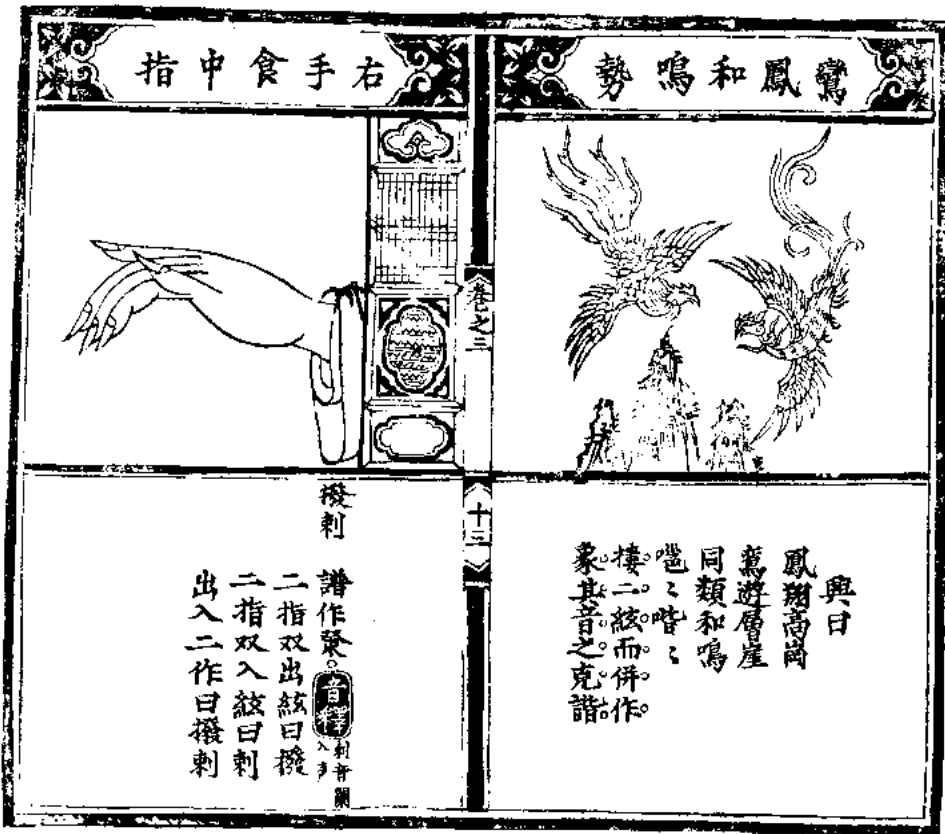 鸞鳳和鳴勢
興曰
鳳翔高崗
鸞遊層崖
同類和鳴
噰〻喈〻
摟。二。絃。而。併。作。
象。其。音。之。克。諧。
卷之三
十三
右手食中指
撥剌 譜作。音釋 剌音闌入声
二指双出絃曰撥
二指双入絃曰剌
出入二作曰撥剌